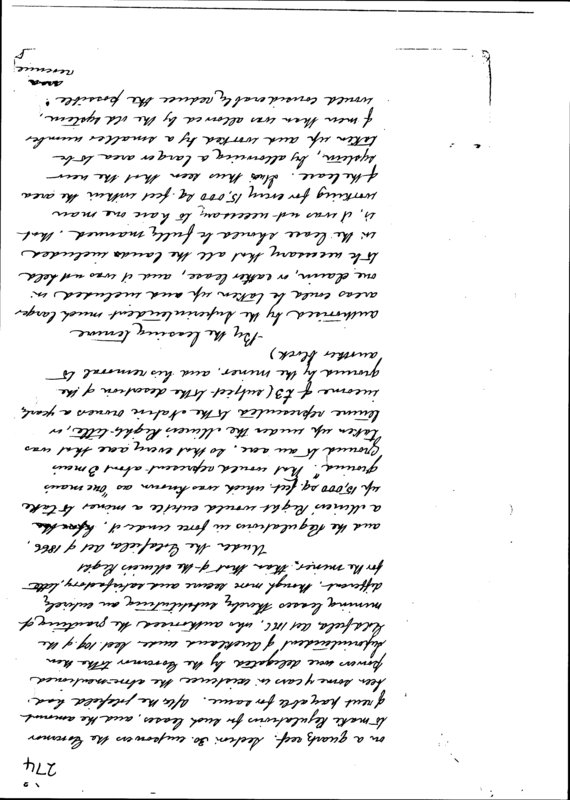 274
on a quartz reef. Section 30 empowers the Governor
to make Regulations for such leases, and the amount
of rent payable for same. After the goldfield had
been some years in existence the abovementioned
powers were delegated by the Governor to the then
Superintendent of Auckland under Sec 109 of the
Goldfields Act 1866, who authorised the granting of
mining leases thereby substituting an entirely
different, though more secure and satisfactory, title
for the miner, than that of the Miners Right
Under the Goldfields Act of 1866,
and the Regulations in force under it,
a Miners Right would entitle a miner to take
up 15,000 sq. feet which was known as "one mans
ground". That would represent about 3 mens
ground to an acre, so that every acre that was
taken up under the Miners Right title, or
tenure represented to the Native owners a yearly
income of £3 (subject to the desertion of the
ground by the miner, and his removal to
another block)
By the leasing tenure
authorised by the Superintendent much larger
areas could be taken up and included in
one claim, or rather lease, and it was not held
to be necessary that all the lands included
in the lease should be fully manned, that
is, it was not necessary to have one man
working for every 15,000 sq feet within the area
of the lease. It was thus seen that the new
system, by allowing a larger area to be
taken up and worked by a smaller number
of men than was allowed by the old system,
would considerably reduce the possible
revenue